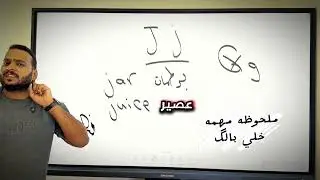 J j
jar برطمان
juice عصير
ملحوظه مهمه
خلي بالگ